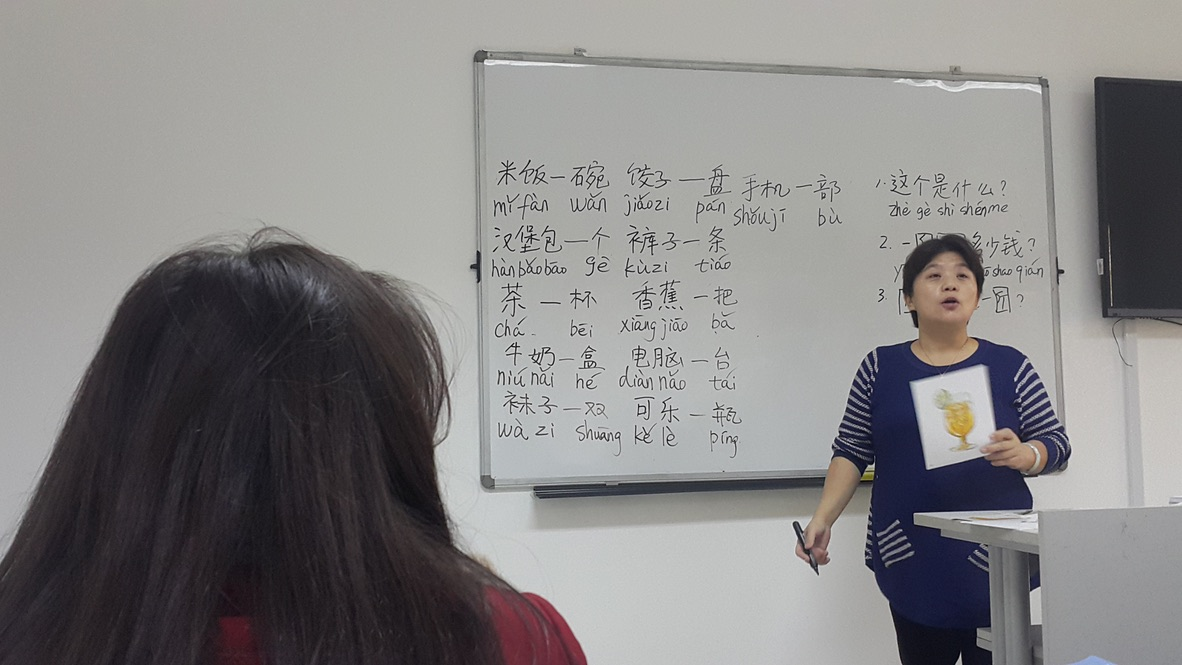 米饭一碗 饺子一盘 手机一部
mǐfàn wǎn jiǎozi pán shǒujī bù
汉堡包一个 裤子一条
hànbǎobāo gè kùzi tiáo
茶一杯 香蕉一把
chá bēi xiāngjiāo bǎ
牛奶一盒 电脑一台
niúnǎi hé diànnǎo tái
袜子一双 可乐一瓶
wàzi shuāng kělè píng
1. 这个是什么?
zhè gè shì shénme
2. 一 多少钱?
shao qián
3. 一 ?